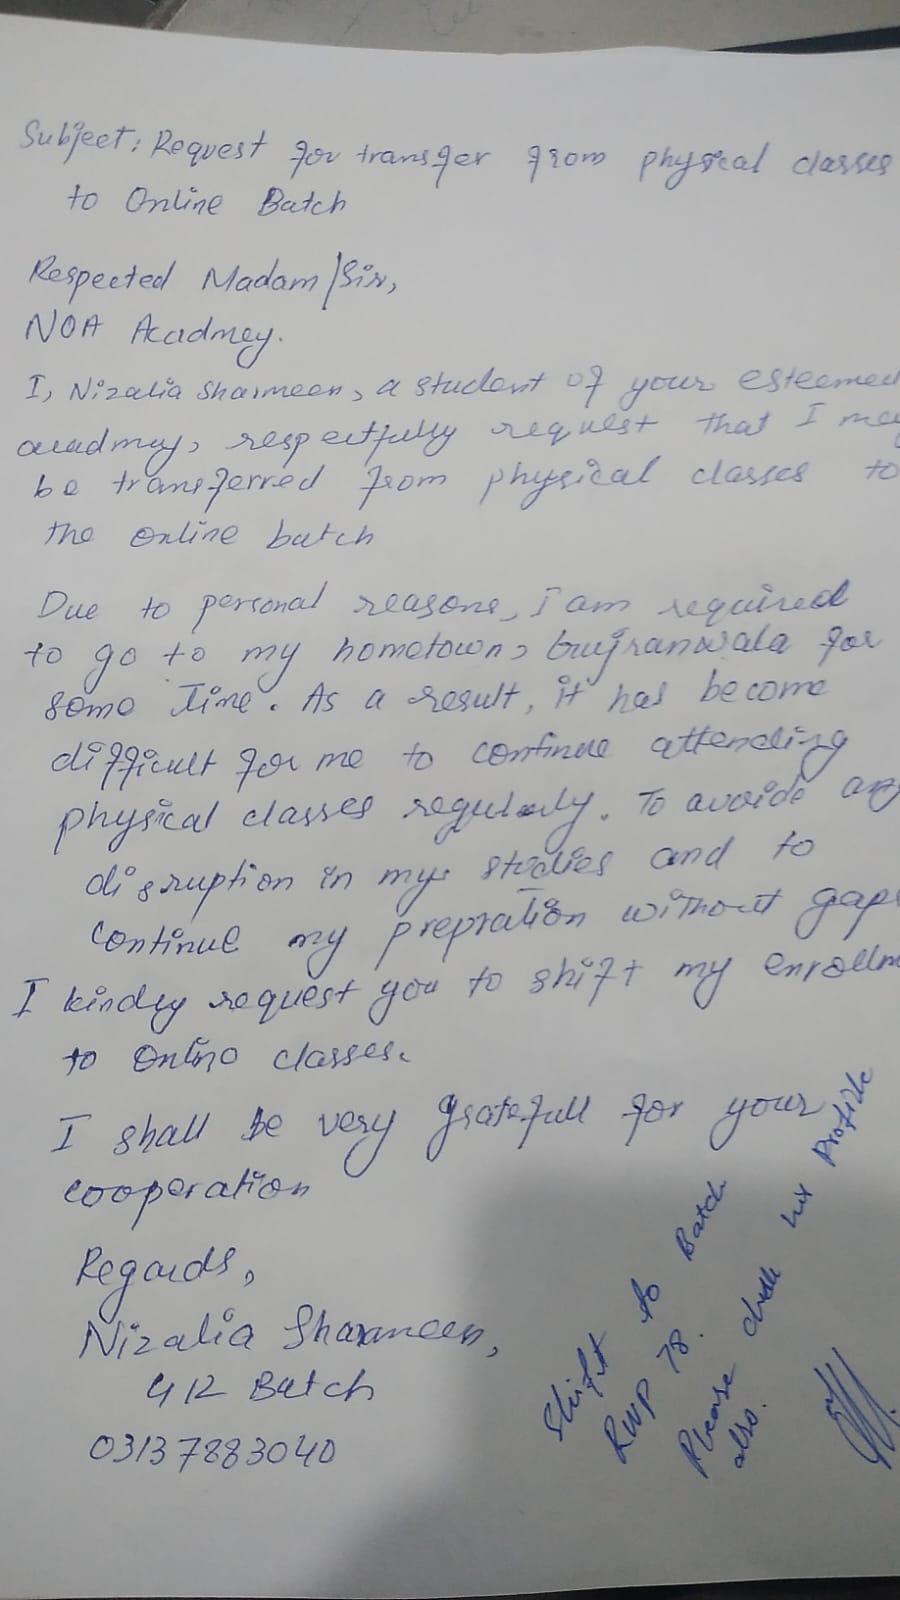 Subject: Request for transfer from physical classes
to Online Batch
Respected Madam/Sir,
NOA Acadmey.
I, Nizalia Sharmeen, a student of your esteemed
acadmey, respectfully request that I may
be transferred from physical classes to
the online batch
Due to personal reasons, I am required
to go to my hometown, Gujranwala for
some time. As a result, it has become
difficult for me to continue attending
physical classes regularly. To avoide any
disruption in my studies and to
continue my prepration without gaps
I kindly request you to shift my enrollm
to online classes.
I shall be very gratefull for your
cooperation
Regards,
Nizalia Sharmeen,
412 Batch
03137883040
Shift to Batch
RWP 78.
Please check her Profile
also.